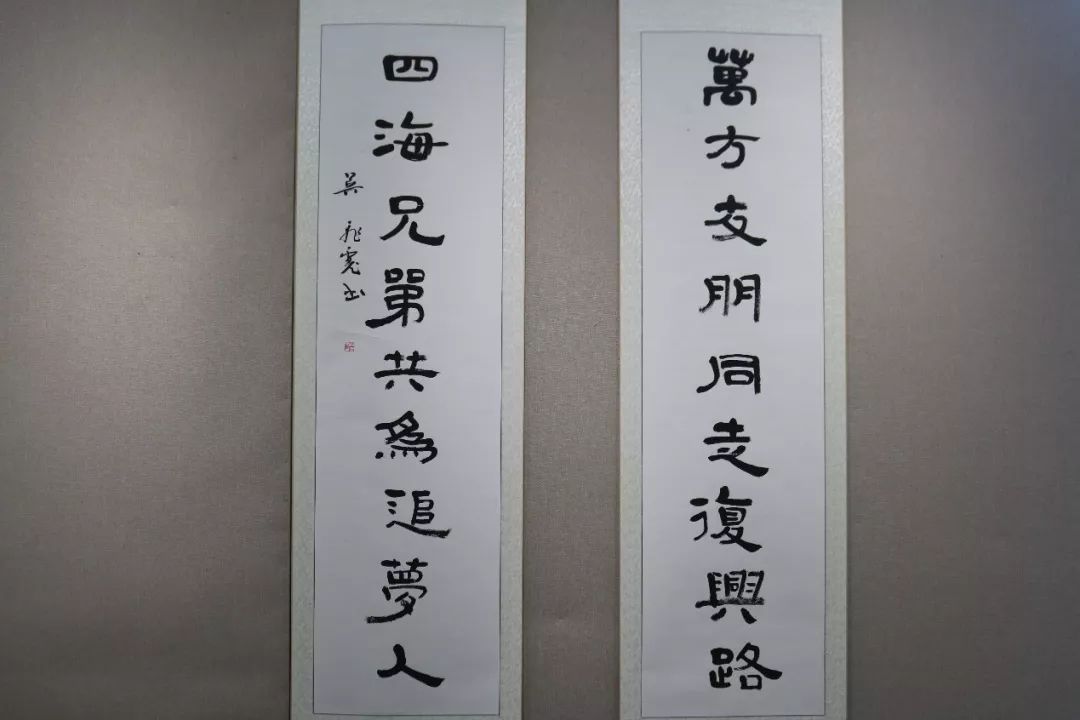 萬方友朋同走復興路
四海兄弟共為追夢人
吳
書